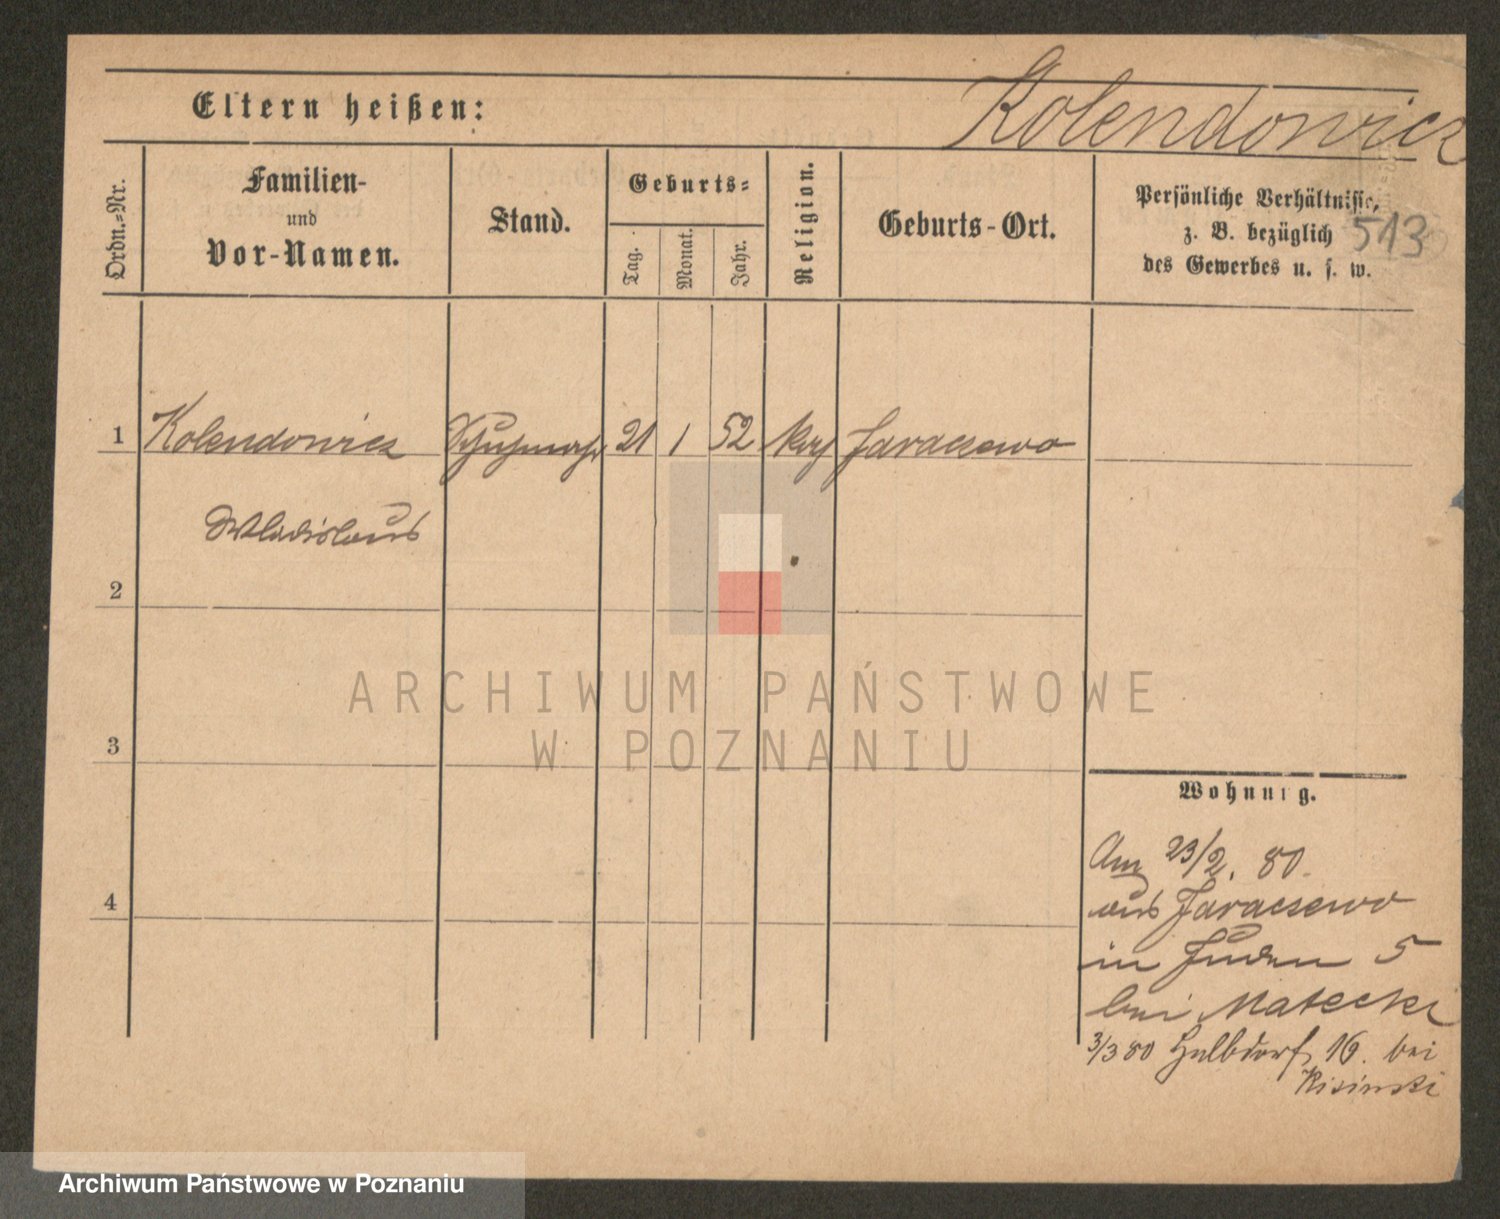 Kolendowicz
Eltern heißen:
Ordn.-Nr.
Familien-
und
Vor-Namen.
Stand.
Geburts-
Tag.
Monat.
Jahr.
Religion.
Geburts-Ort.
Persönliche Verhältnisse,
z. B. bezüglich
des Gewerbes u. s. w.
513
1 Kolendowicz Schuhmachr 21 1 52 kath Jaraczewo
Wladislaus
2
3
4
Wohnung.
Am 23/2. 80.
aus Jaraczewo
in Juden 5
bei Matecki
3/3 80 Halbdorf 16. bei
Risinski
ARCHIWUM PAŃSTWOWE
W POZNANIU
Archiwum Państwowe w Poznaniu